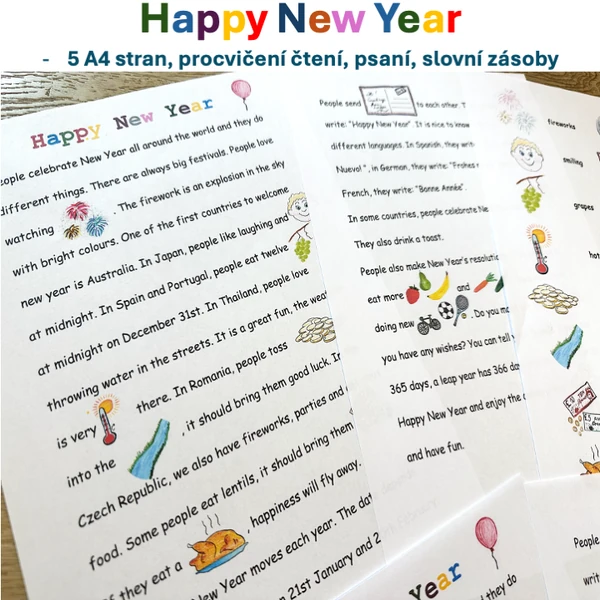 Happy New Year
- 5 A4 stran, procvičení čtení, psaní, slovní zásoby
Happy New Year
people celebrate New Year all around the world and they do
different things. There are always big festivals. People love
watching . The firework is an explosion in the sky
with bright colours. One of the first countries to welcome
new year is Australia. In Japan, people like laughing and
at midnight. In Spain and Portugal, people eat twelve
at midnight on December 31st. In Thailand, people love
throwing water in the streets. It is a great fun, the
is very there. In Romania, people toss
into the , it should bring them good luck. In
Czech Republic, we also have fireworks, parties and
food. Some people eat lentils, it should bring them
they eat a , happiness will fly away.
New Year moves each year. The
21st January and 2
People send to each other.
write: "Happy New Year". It is nice to know
different languages. In Spanish, they
Nuevo!", in German, they write:
French, they write: "Bonne Année".
In some countries, people celebrate
They also drink a toast.
People also make New Year's
eat more and
doing new . Do you
you have any wishes? You can tell
365 days, a leap year has 366
Happy New Year and enjoy the
and have fun.
fireworks
smiling
grapes
year
they do
People